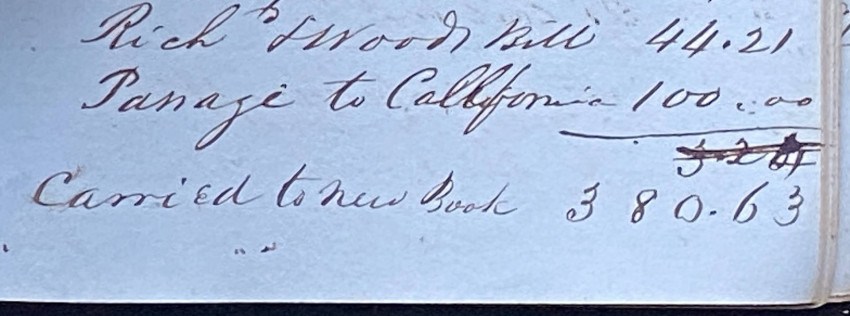 Rich^d Woods Bill 44.21
Passage to California 100.00
Carried to new Book 380.63